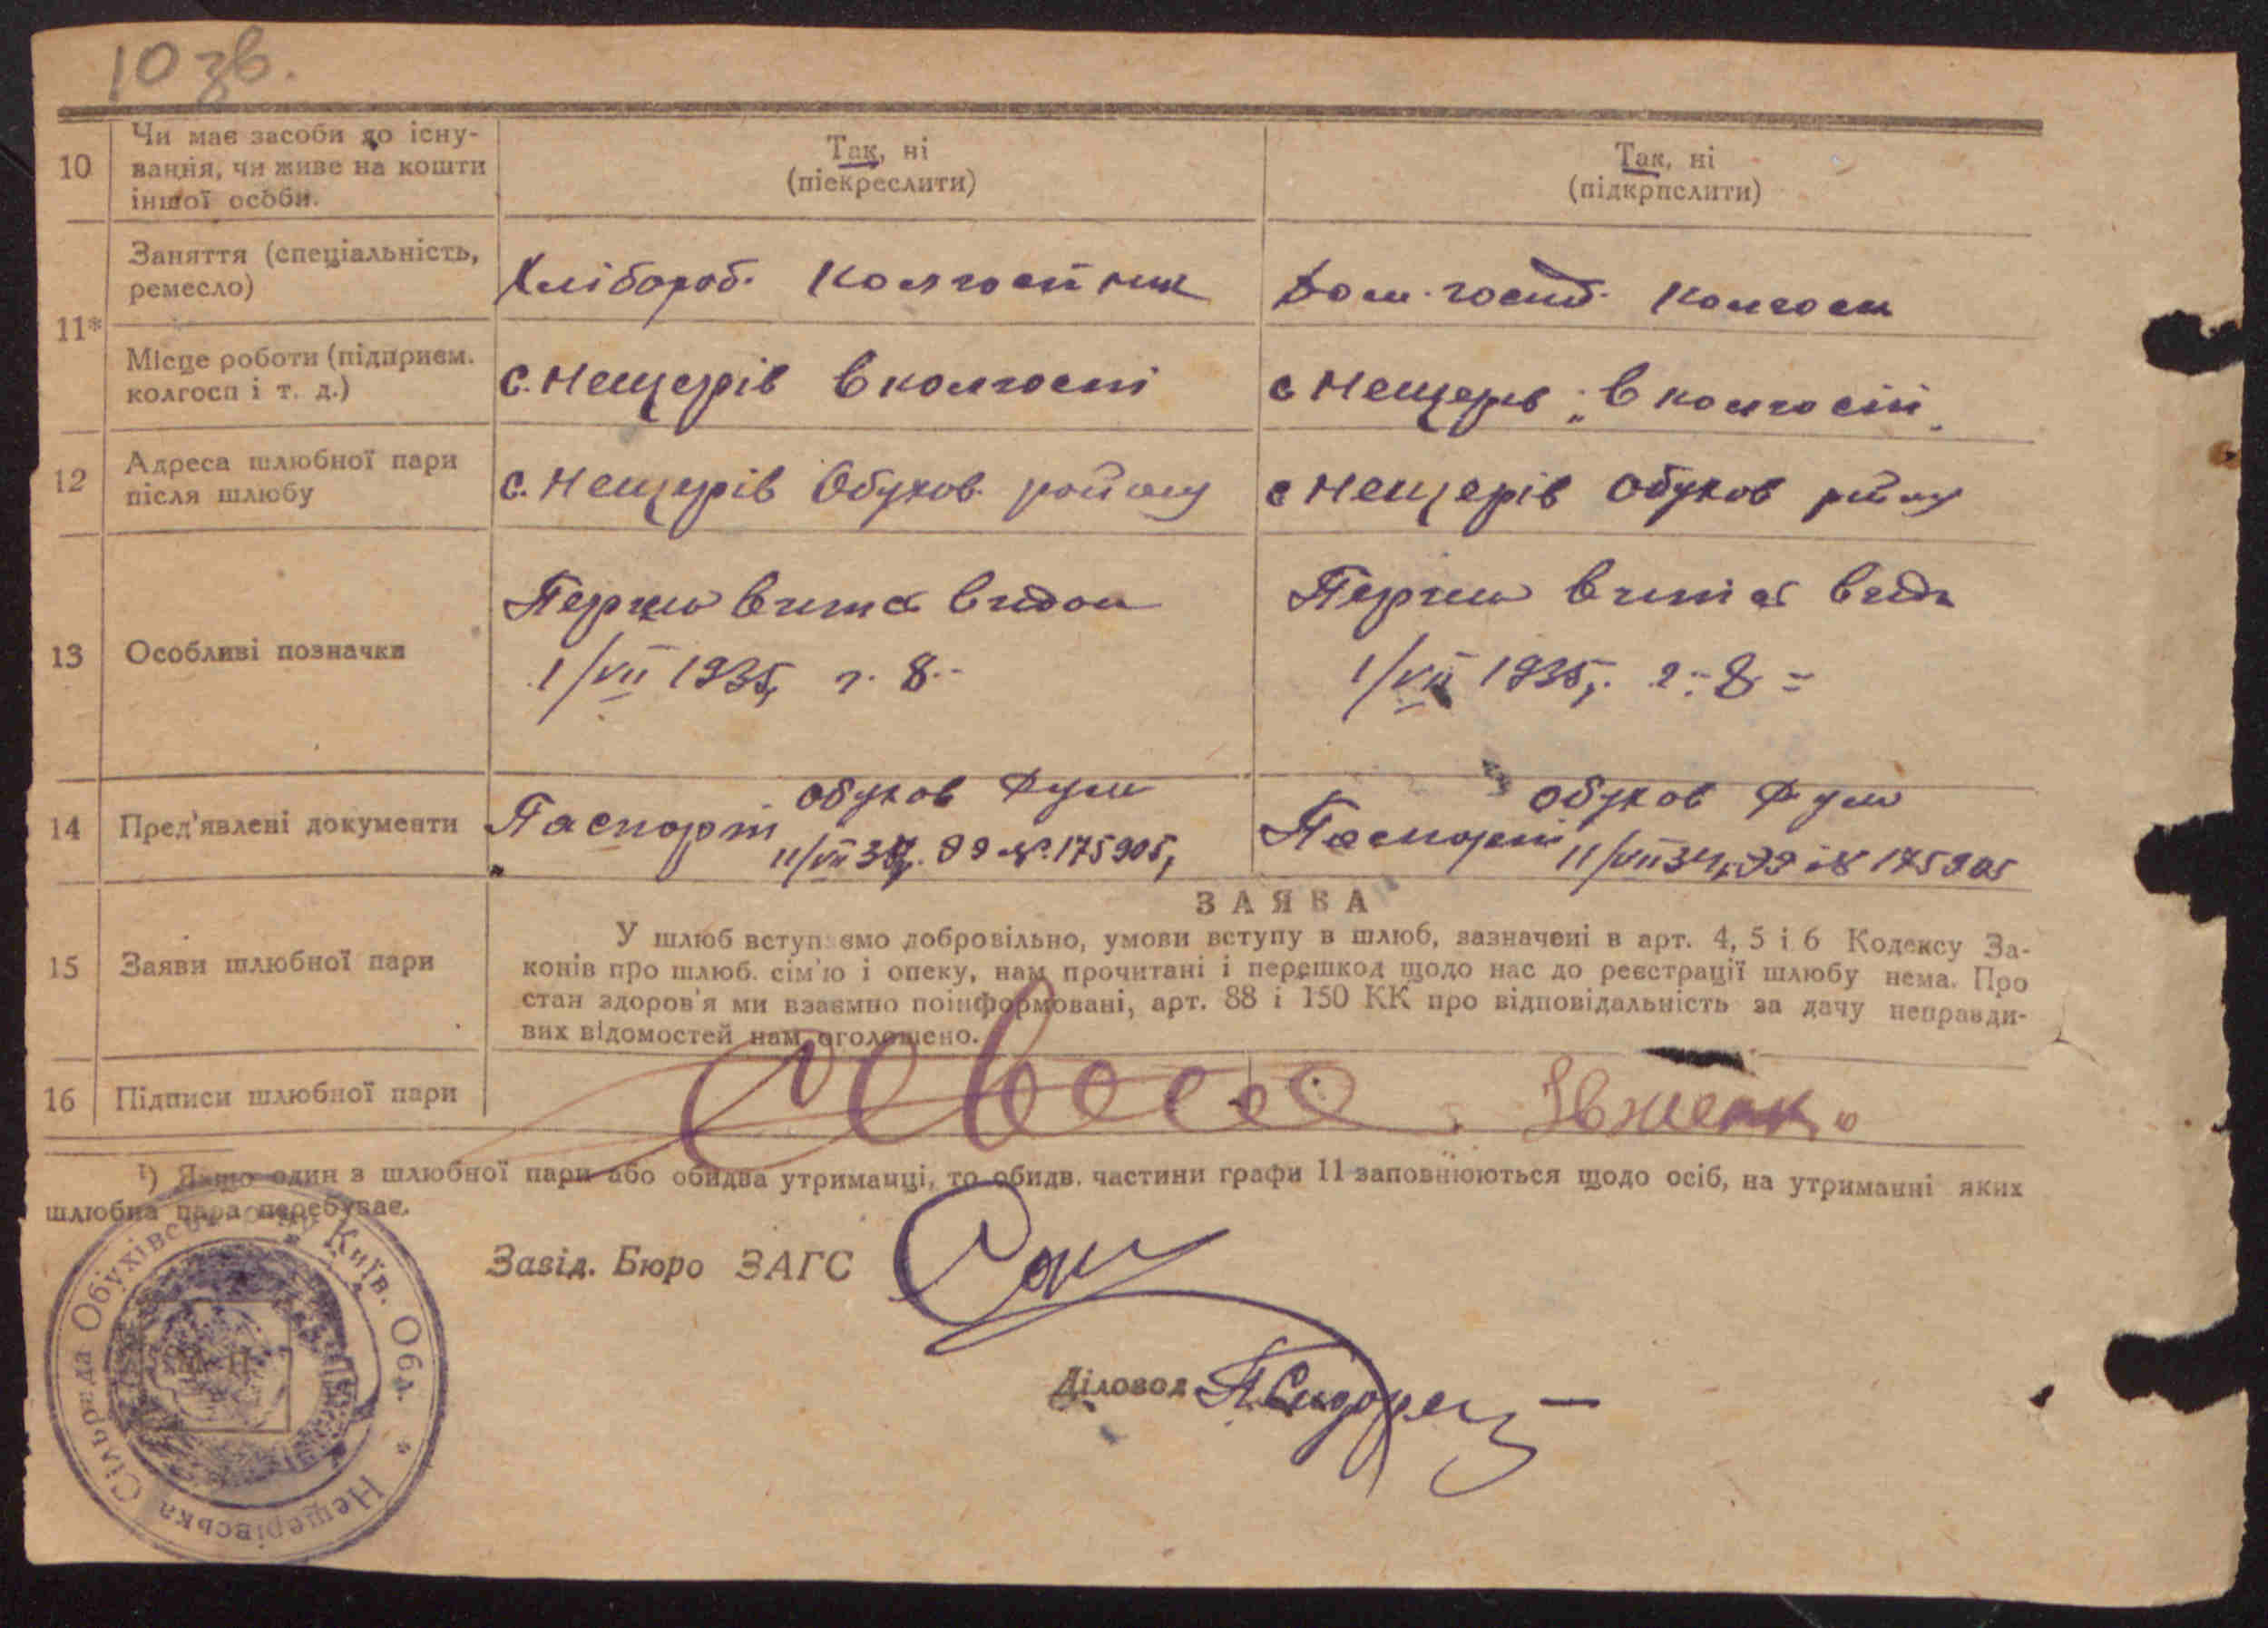 10 зв.
10
Чи має засоби до існу-
вання, чи живе на кошти
іншої особи.
Так, ні
(піекреслити)
Так, ні
(підкрпслити)
11*
Заняття (спеціальність,
ремесло)
Хлібороб. Колгоспник
Дом. госпд. Колгосп
Місце роботи (підприєм.
колгосп і т. д.)
с. Нещерів в колгоспі
с Нещерів в колгоспі
12
Адреса шлюбної пари
після шлюбу
с. Нещерів Обухов. району
с Нещерів Обухов рйну
13
Особливі позначки
Перши витяг видан
1/VII 1935, г. 8
Перши витяг вида
1/VII 1935, г. 8
14
Пред'явлені документи
Паспорт Обухов
11/VII 34, ЭЭ № 175905,
Паспорт Обухов
11/VII 34, ЭЭ № 175905
15
Заяви шлюбної пари
ЗАЯВА
У шлюб вступаємо добровільно, умови вступу в шлюб, зазначені в арт. 4, 5 і 6 Кодексу За-
конів про шлюб. сім'ю і опеку, нам прочитані і перешкод щодо нас до реєстрації шлюбу нема. Про
стан здоров'я ми взаємно поінформовані, арт. 88 і 150 КК про відповідальність за дачу неправди-
вих відомостей нам оголошено.
16
Підписи шлюбної пари
1) Якщо один з шлюбної пари або обидва утриманці, то обидв. частини графи 11 заповнюються щодо осіб, на утриманні яких
шлюбна пара перебуває.
Завід. Бюро ЗАГС
Діловод П Сидорец
Нещерівська Сільрада Обухівського Київ. Обл.